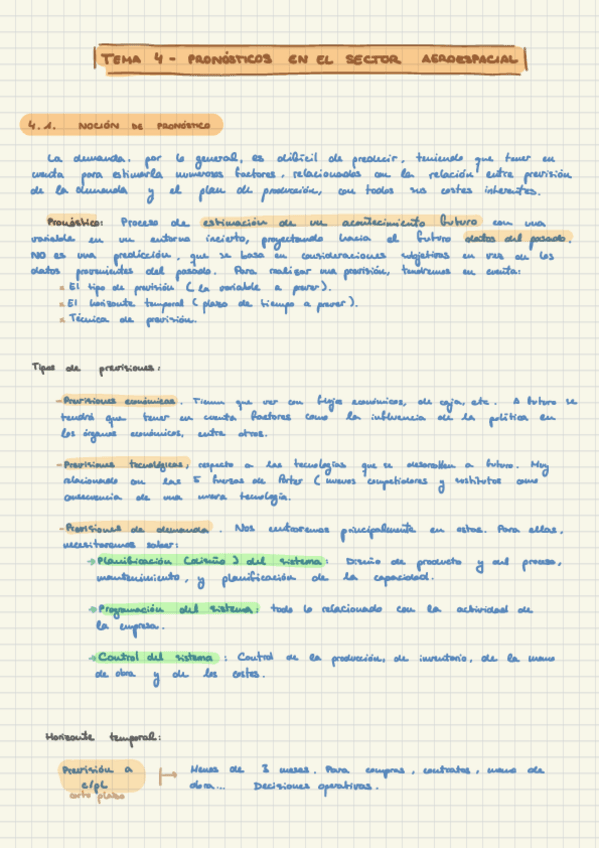 TEMA 4 - PRONÓSTICOS EN EL SECTOR AEROESPACIAL
4.1. NOCIÓN DE PRONÓSTICO
La demanda, por lo general, es difícil de predecir, teniendo que tener en
cuenta para estimarla numerosos factores, relacionados con la relación entre previsión
de la demanda y el plan de producción, con todos sus costes inherentes.
Pronóstico: Proceso de estimación de un acontecimiento futuro con una
variable en un entorno incierto, proyectando hacia el futuro datos del pasado.
NO es una predicción, que se basa en consideraciones subjetivas en vez de los
datos provenientes del pasado. Para realizar una previsión, tendremos en cuenta:
• El tipo de previsión (la variable a prever).
• El horizonte temporal (plazo de tiempo a prever).
• Técnica de previsión.
Tipos de previsiones:
- Previsiones económicas. Tienen que ver con flujos económicos, de caja, etc. A futuro se
tendrá que tener en cuenta factores como la influencia de la política en
los órganos económicos, entre otros.
- Previsiones tecnológicas, respecto a las tecnologías que se desarrollen a futuro. Muy
relacionado con las 5 fuerzas de Porter (nuevos competidores y sustitutos como
consecuencia de una nueva tecnología.
- Previsiones de demanda. Nos centraremos principalmente en estas. Para ellas,
necesitaremos saber:
→ Planificación (diseño) del sistema: Diseño de producto y del proceso,
mantenimiento, y planificación de la capacidad.
→ Programación del sistema: todo lo relacionado con la actividad de
la empresa.
→ Control del sistema: Control de la producción, de inventario, de la mano
de obra y de los costes.
Horizonte temporal:
Previsión a
c/pl
corto plazo
Menos de 3 meses. Para compras, contratos, mano de
obra... Decisiones operativas.